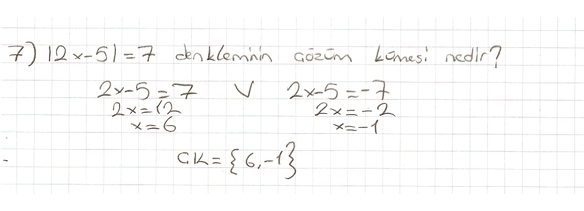 7) |2x-5|=7 denkleminin çözüm kümesi nedir?
2x-5=7 V 2x-5=-7
2x=12 2x=-2
x=6 x=-1
ÇK={6,-1}